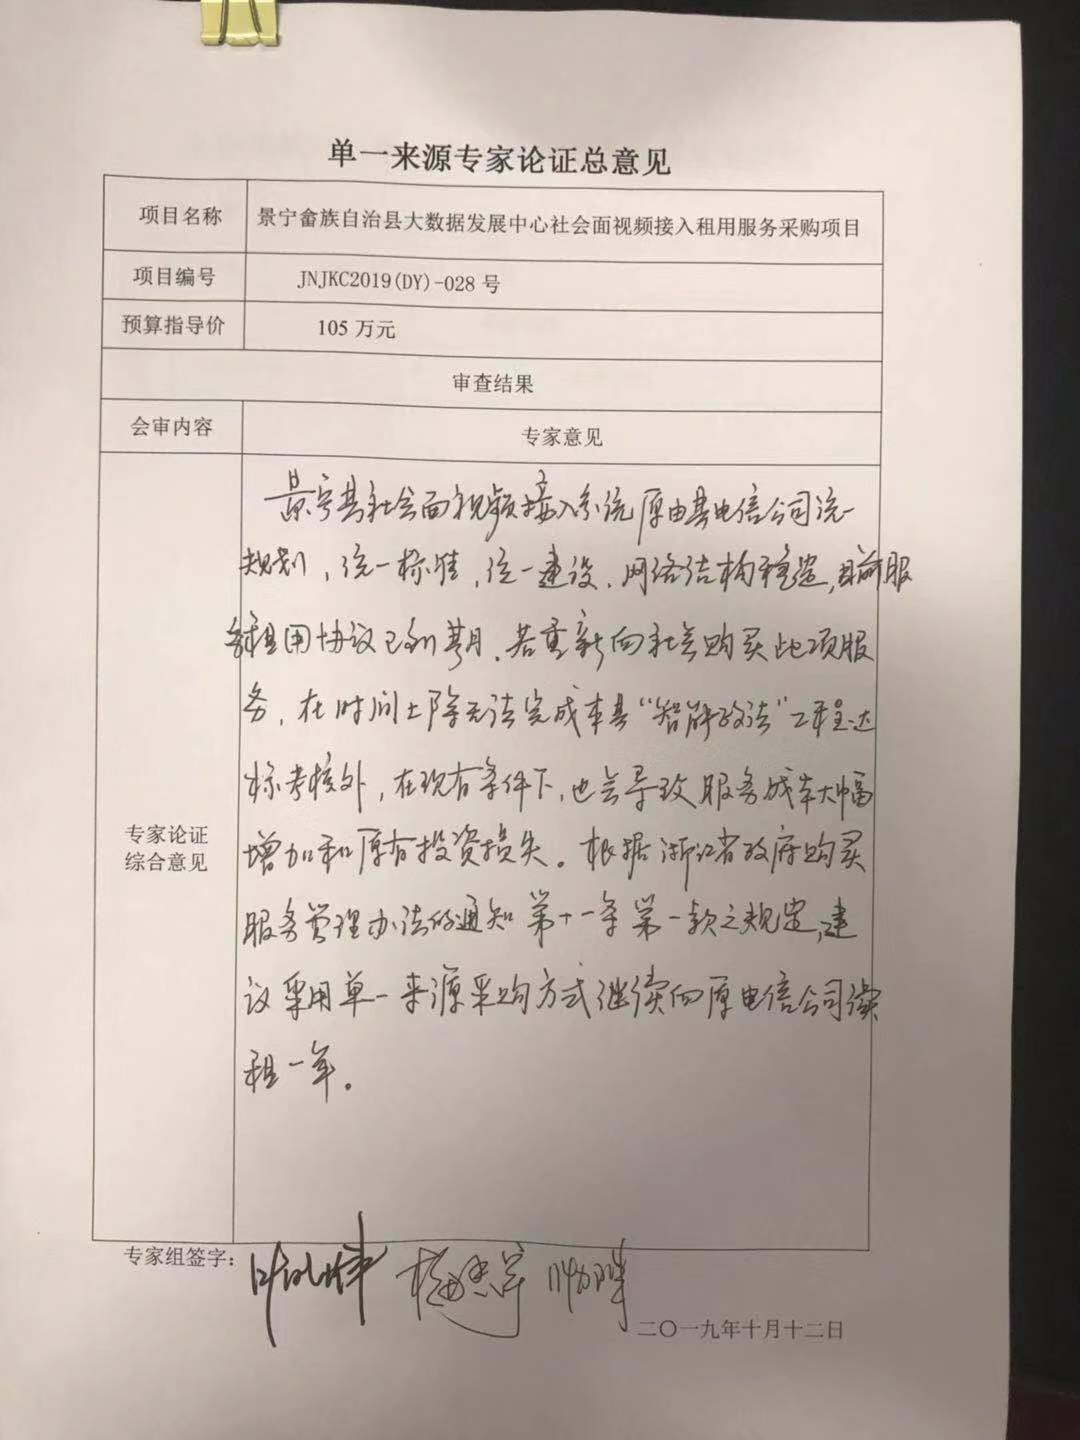 单一来源专家论证总意见
项目名称 景宁畲族自治县大数据发展中心社会面视频接入租用服务采购项目
项目编号 JNJKC2019(DY)-028 号
预算指导价 105 万元
审查结果
会审内容 专家意见
专家论证
综合意见
景宁县社会面视频接入系统原由县电信公司统一
规划，统一标准，统一建设、网络结构稳定，目前服
务租用协议已到期。若重新向社会购买此项服
务，在时间上除无法完成本县“智能政法”工程达
标考核外，在现有条件下，也会导致服务成本大幅
增加和原有投资损失。根据浙江省政府购买
服务管理办法的通知第十一条第一款之规定，建
议采用单一来源采购方式继续向原电信公司续
租一年。
专家组签字：
二〇一九年十月十二日